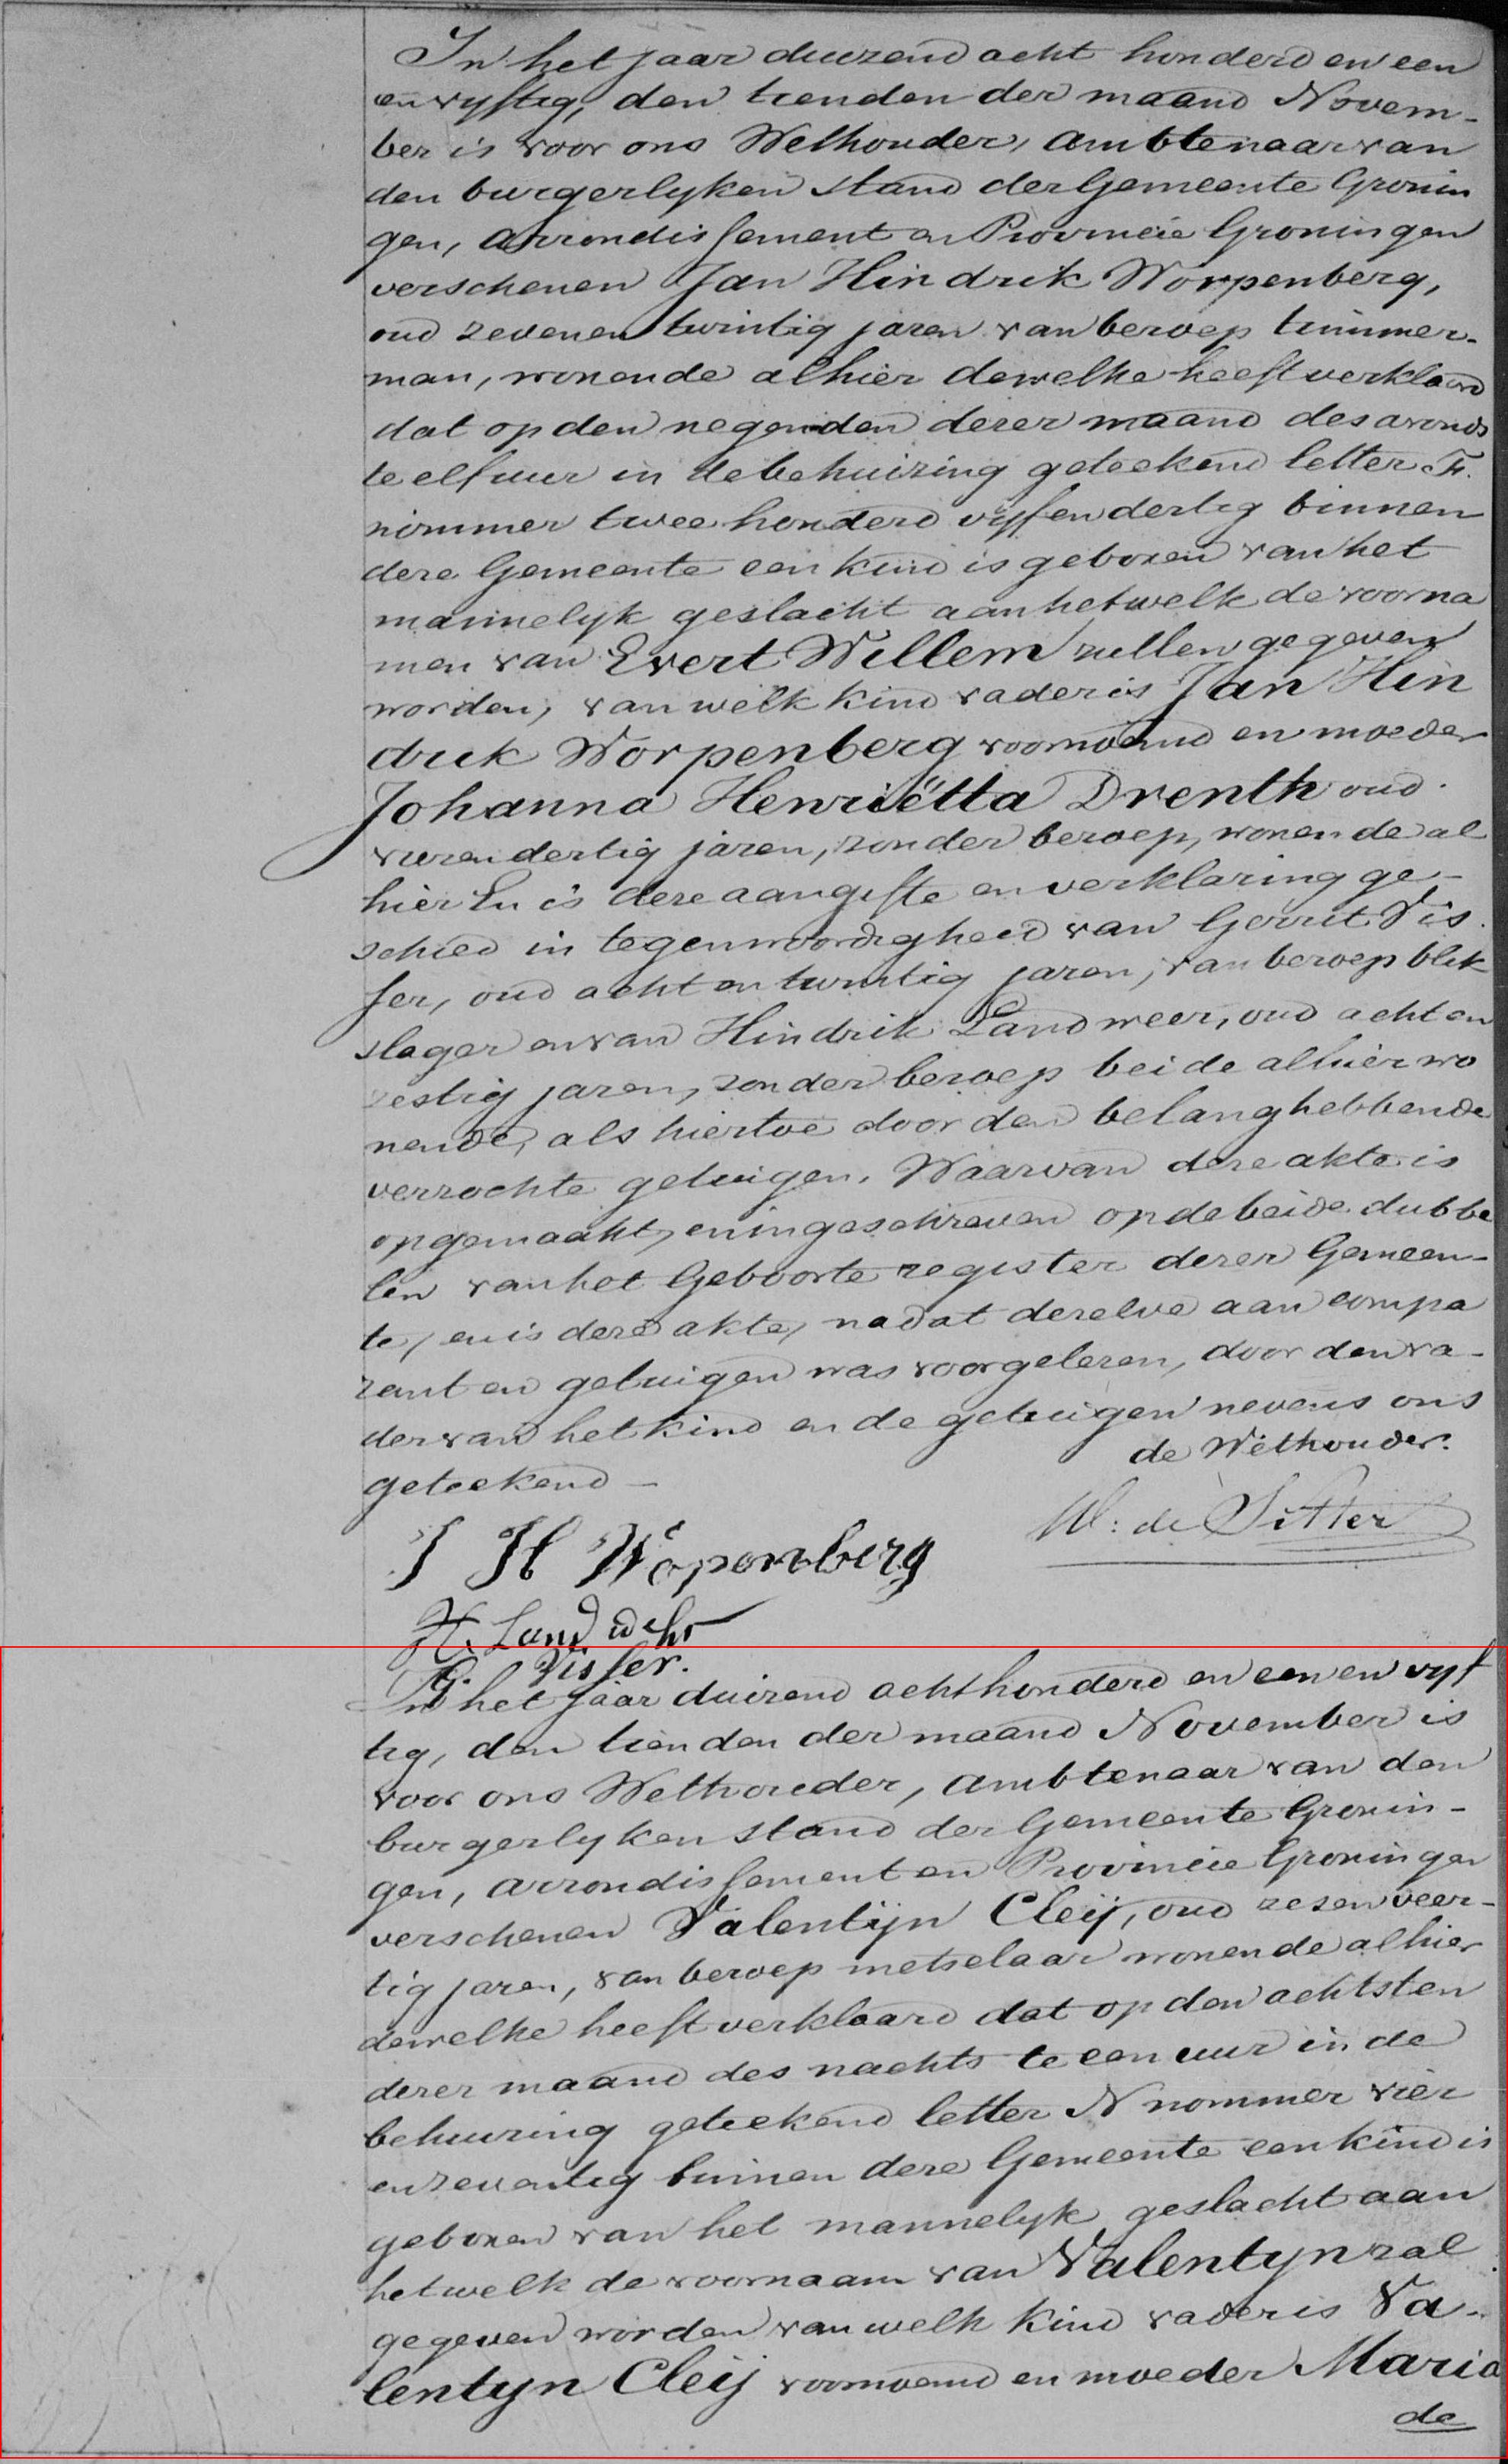 In het jaar duizend acht honderd en een
en vyftig, den tienden der maand Novem-
ber is voor ons Wethouder, Ambtenaar van
den burgerlyken stand der Gemeente Gronin
gen, Arrondissement en Provincie Groningen
verschenen Jan Hindrik Worpenberg,
oud zevenen twintig jaren van beroep timmer-
man, wonende alhier dewelke heeft verklaard
dat op den negenden dezer maand des avonds
te elf uur in de behuizing geteekend letter F.
nommer twee honderd vyf en dertig binnen
deze Gemeente een kind is geboren van het
mannelyk geslacht aan hetwelk de voorna
men van Evert Willem zullen gegeven
worden, van welk kind vader is Jan Hin
drik Worpenberg voornoemd en moeder
Johanna Henriëtta Drenth oud
vieren dertig jaren, zonder beroep, wonende al
hier En is deze aangifte en verklaring ge-
schied in tegenwoordigheid van Gerrit Vis
ser, oud acht en twintig jaren, van beroep blik
slager en van Hindrik Landweer, oud acht en
zestig jaren, zonder beroep beide alhier wo
nende, als hiertoe door den belanghebbende
verzochte getuigen. Waarvan deze akte is
opgemaakt, en ingeschreven op de beide dubbe
len van het Geboorte register dezer Gemeen-
te, en is deze akte, nadat dezelve aan compa
rant en getuigen was voorgelezen, door den va-
der van het kind en de getuigen nevens ons
geteekend –
de Wethouder.
W: de Sitter
J H Wopenberg
H. Landwehr
G. Visser.
In het jaar duizend achthonderd en een en vyf
tig, den tienden der maand November is
voor ons Wethouder, Ambtenaar van den
burgerlyken stand der Gemeente Gronin-
gen, Arrondissement en Provincie Groningen
verschenen Valentijn Cleij, oud zesenveer-
tig jaren, van beroep metselaar wonende alhier
dewelke heeft verklaard dat op den achtsten
dezer maand des nachts te een uur in de
behuizing geteekend letter N nommer vier
en zeventig binnen deze Gemeente een kind is
geboren van het mannelyk geslacht aan
hetwelk de voornaam van Valentyn zal
gegeven worden van welk kind vader is Va-
lentyn Cleij voornoemd en moeder Maria
de